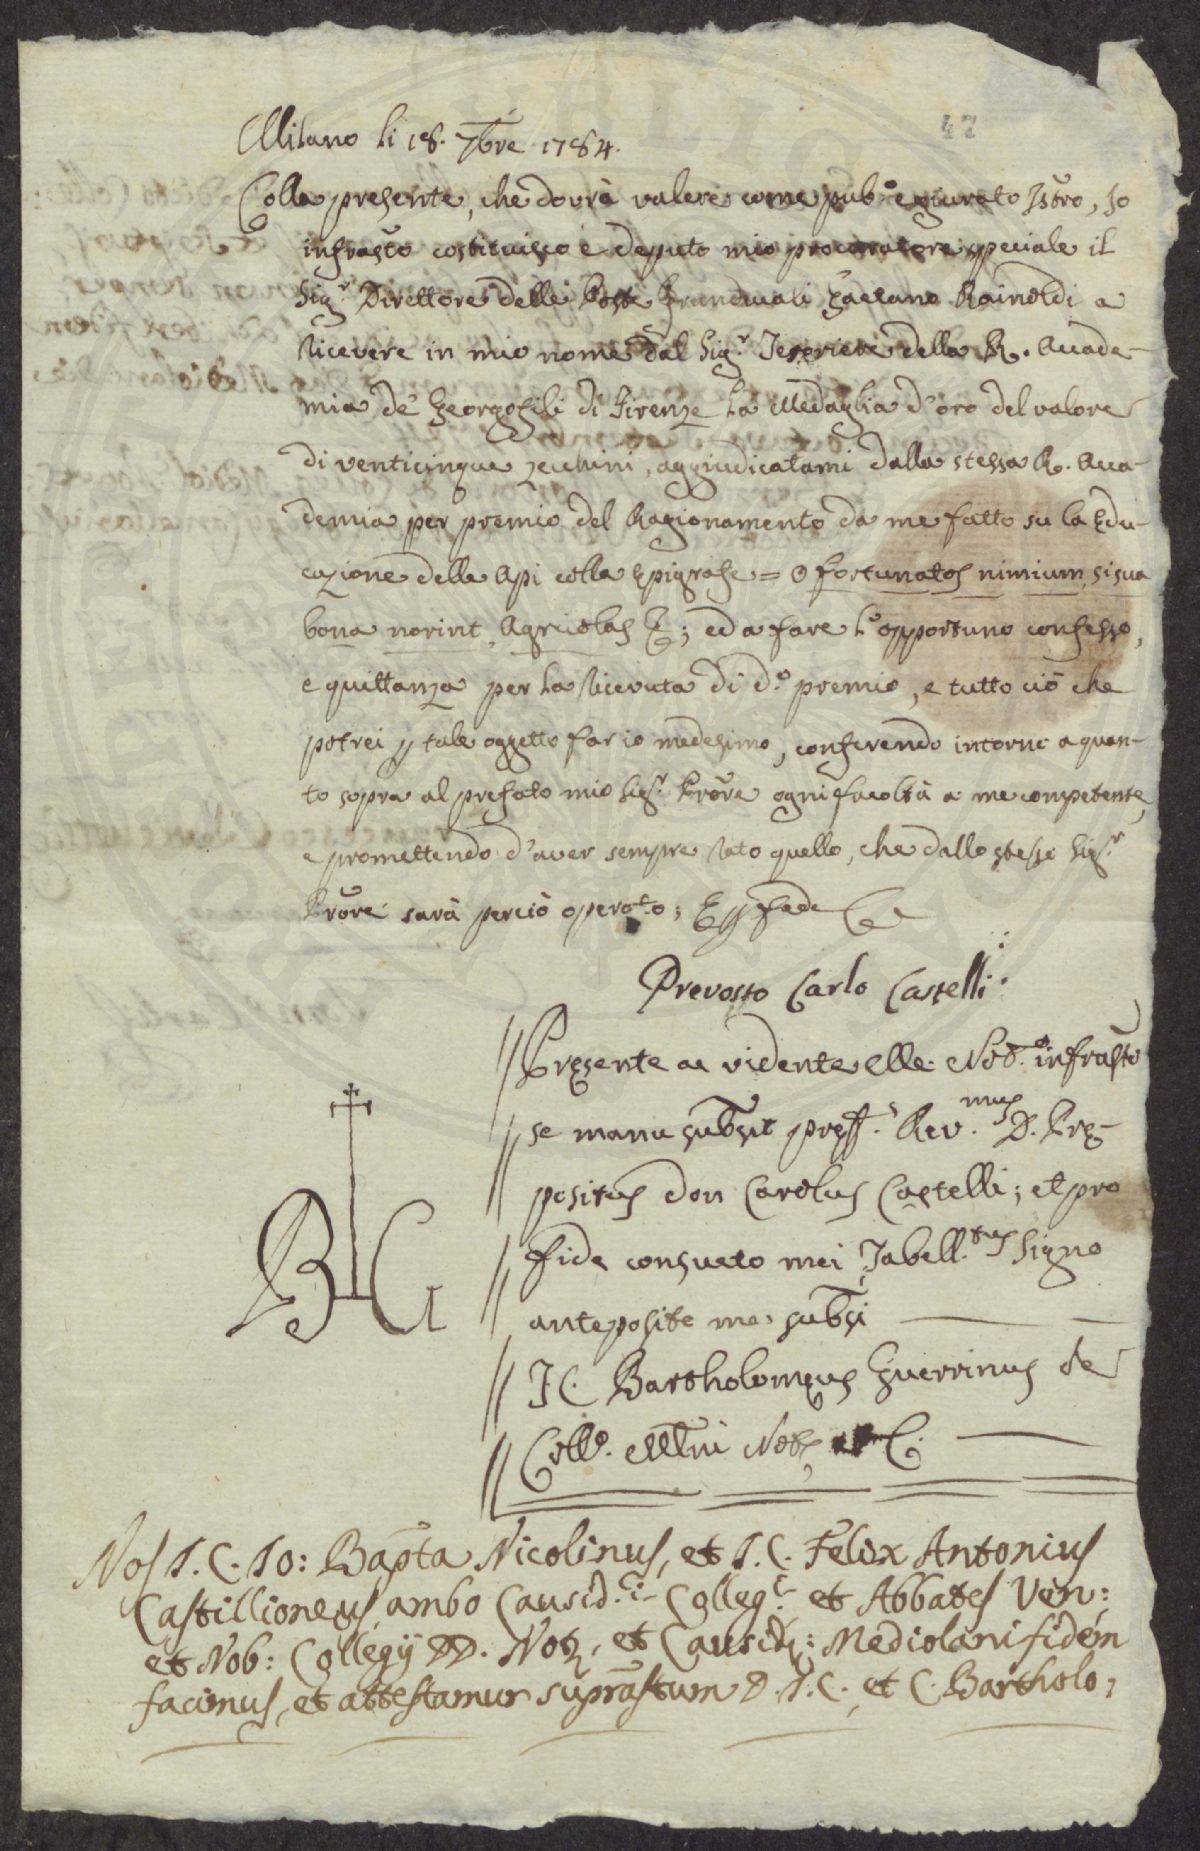 47
Milano li 18. 7bre 1784.
Colla presente, che dovrà valere come pub.o e giurato Istro, Io
infrasto costituisco e deputo mio procuratore speciale il
Sig.r Direttore delle Poste Gaetano Rainoldi a
ricevere in mio nome dal Sig.r della R. Accade-
mia de' Georgofili di Firenze la Medaglia d'oro del valore
di venticinque zecchini, aggiudicatami dalla stessa R. Acca-
demia per premio del Ragionamento da me fatto su la Edu-
cazione delle Api colla Epigrafe = O fortunatos nimium, si sua
bona norint, Agricolas &; ed a fare l'opportuno confesso,
e quittanza per la ricevuta di d.o premio, e tutto ciò che
potrei p tale oggetto far io medesimo, conferendo intorno a quan-
to sopra al prefato mio Sig.r Prore ogni facoltà a me competente,
e promettendo d'aver sempre rato quello, che dallo stesso Sig.r
Prore sarà perciò operato; E p fede
Prevosto Carlo Castelli
Presente ac vidente me Not.o infrasto
se manu subsit preff.s Rev.mus D. Præ-
positus don Carolus Castelli; et pro
fide consueto mei Tabell.tus Signo
anteposito me subsi
J. C. Bartholomeus Guerrinus de
Coll.o Mlni Not. C.
B C
Nos I. C. Io: Bapta Nicolinus, et I. C. Felix Antonius
Castillioneus, ambo Causid.ci Colleg.ti et Abbates Ven:
et Nob: Collegij DD. Not, et Causid: Mediolani fidem
facimus, et attestamur suprastum D. I. C. et C. Bartholo: